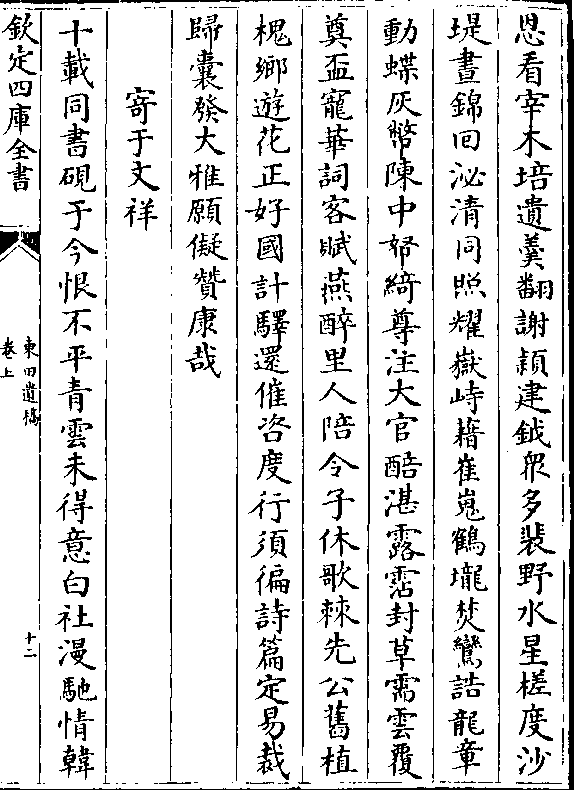 恩看宰木培遺羮翻謝頴建鉞眾多裴野水星槎度沙
堤晝錦回泌清同照耀嶽峙藉崔嵬鶴壠焚鸞誥龍章
動蝶灰幣陳中帑綺尊注大官醅湛露霑封草需雲覆
奠盃寵華詞客賦燕醉里人陪令子休歌棘先公舊植
槐鄉遊花正好國計驛還催咨度行須徧詩篇定易裁
歸囊發大雅願儗贊康哉
寄于文祥
十載同書硯于今恨不平青雲未得意白社漫馳情韓
欽定四庫全書
東田遺稿
卷上
十二